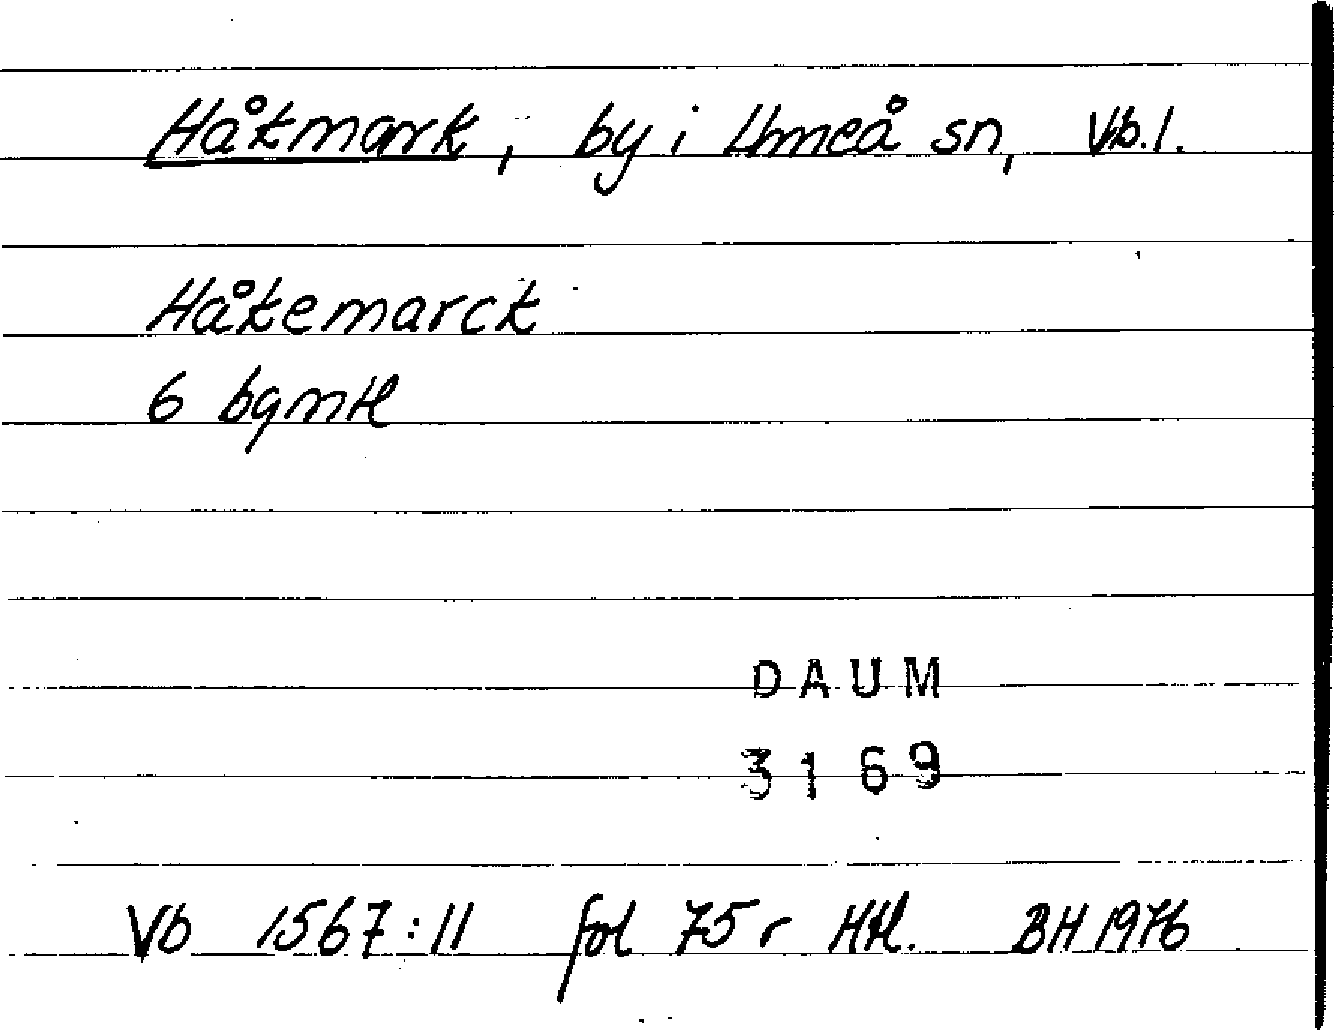 Håkmark, by i Umeå sn, Vb.l.
Håkemarck
6 bgmtl
DAUM
3169
Vb 1567:11 fol 75 r Htl. BH 1976